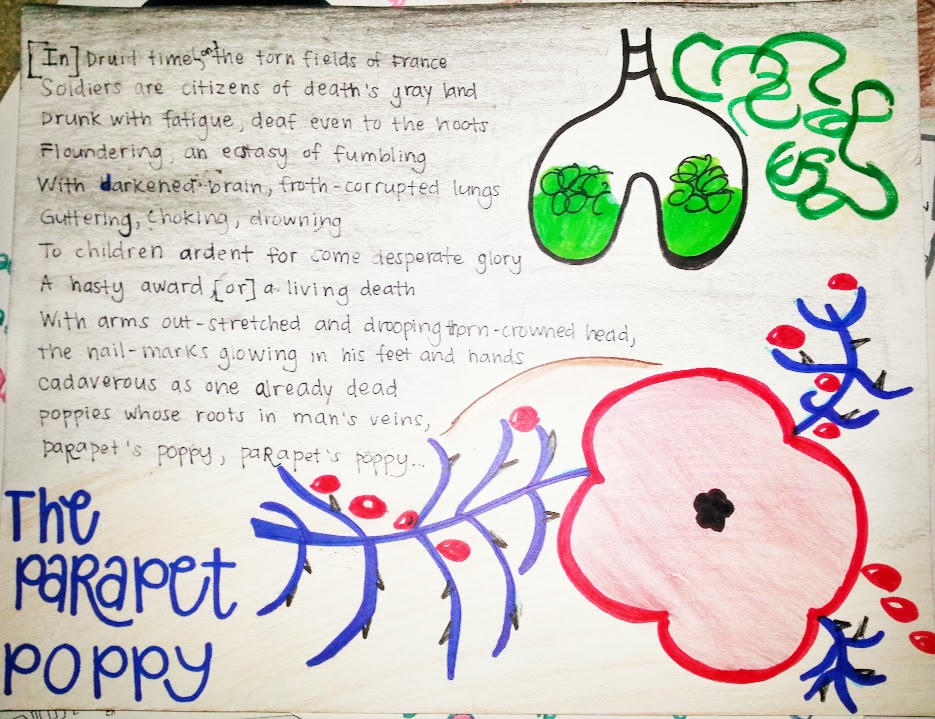 [In] Druid time, [on] the torn fields of France
Soldiers are citizens of death's gray land
Drunk with fatigue, deaf even to the hoots
Floundering, an ecstasy of fumbling
With darkened brain, froth-corrupted lungs
Guttering, choking, drowning
To children ardent for some desperate glory
A hasty award [or] a living death
With arms out-stretched and drooping thorn-crowned head,
the nail-marks glowing in his feet and hands
cadaverous as one already dead
poppies whose roots in man's veins,
parapet's poppy, parapet's poppy...
The
parapet
poppy